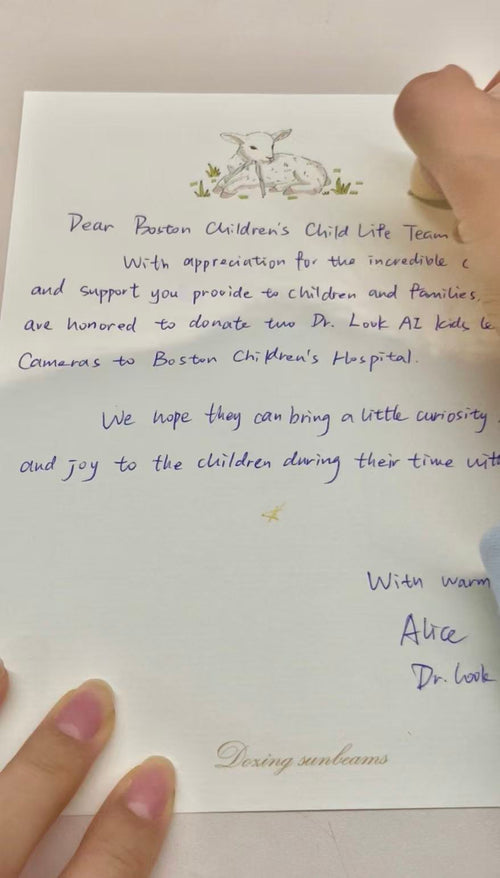 Dear Boston Children's Child Life Team
With appreciation for the incredible
and support you provide to children and families,
are honored to donate two Dr. Look AI kids
Cameras to Boston Children's Hospital.
We hope they can bring a little curiosity
and joy to the children during their time with
With warm
Alice
Dr. Look
Dozing sunbeams